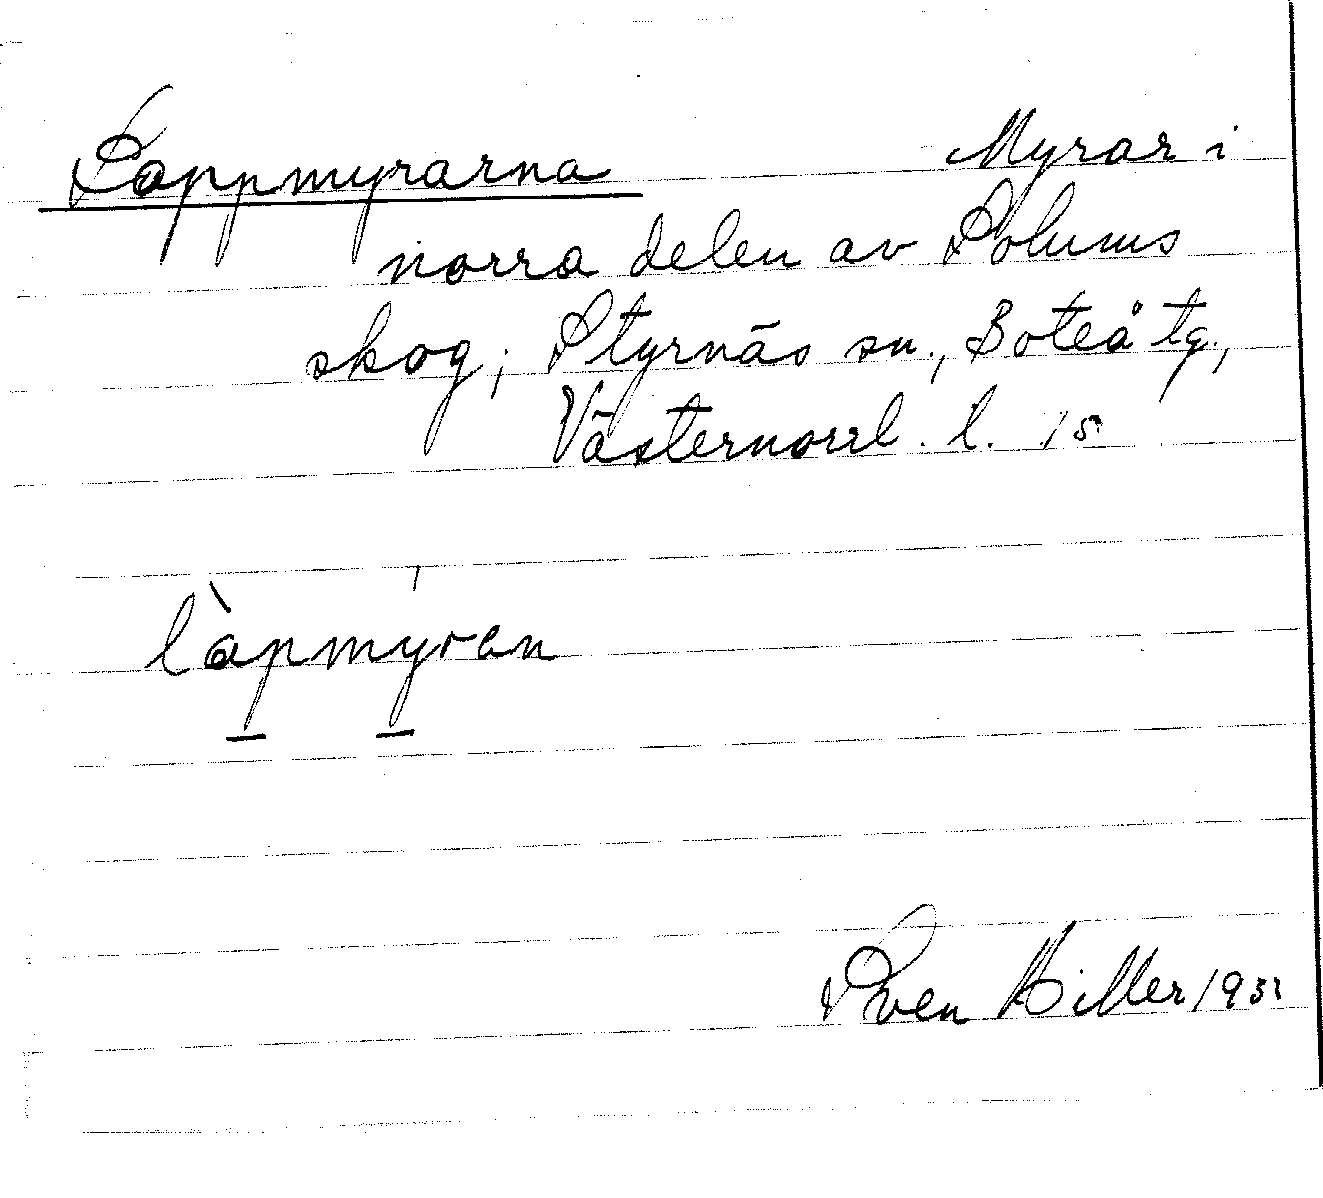 Lappmyrarna Myrar i
norra delen av Solums
skog; Styrnäs sn., Boteå tg.,
Västernorrl. l. 15
làpmyren
Sven Hiller